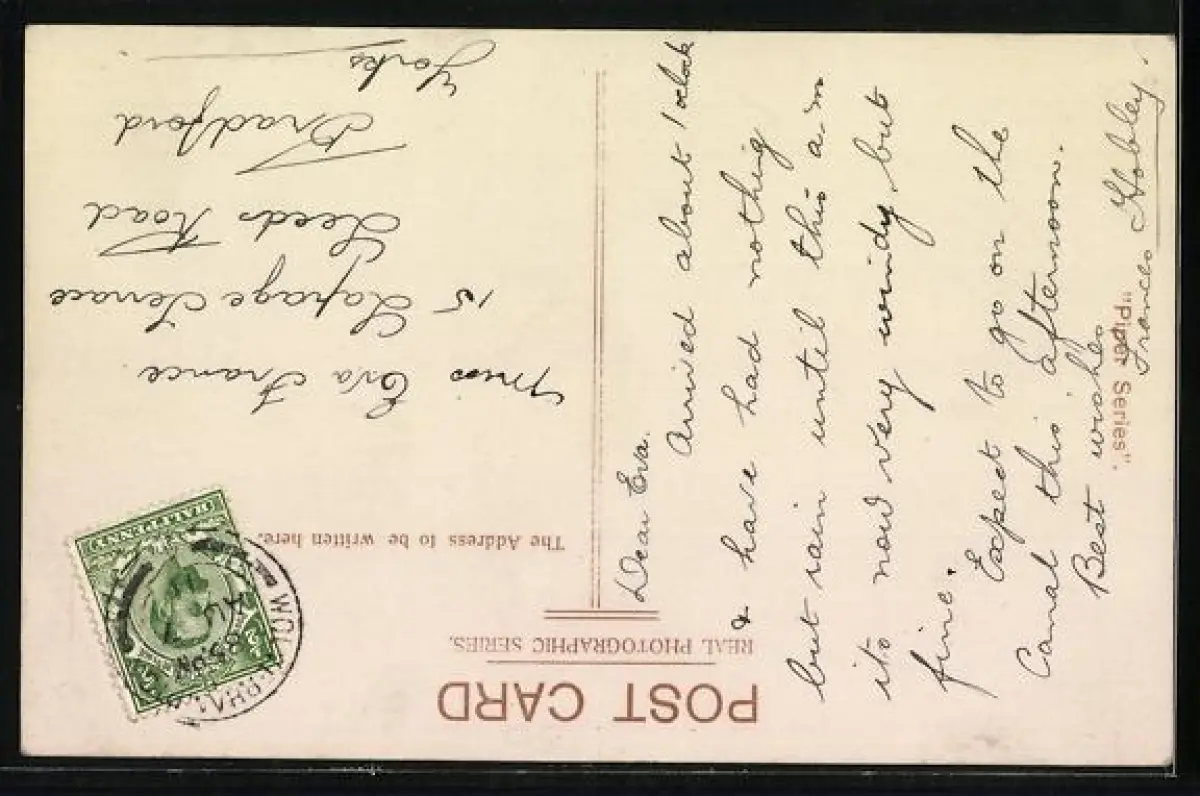 POST CARD
REAL PHOTOGRAPHIC SERIES.
The Address to be written here.
HALFPENNY
AU
85PM
Miss Eva France
15 Lapage Terrace
Leeds Road
Bradford
Yorks
Dear Eva.
Arrived about 1 oclock
& have had nothing
but rain until this a.m
its now very windy, but
fine.
Expect to go on the
Canal this afternoon.
Best wishes
Frances Hobley.
"Piper Series".